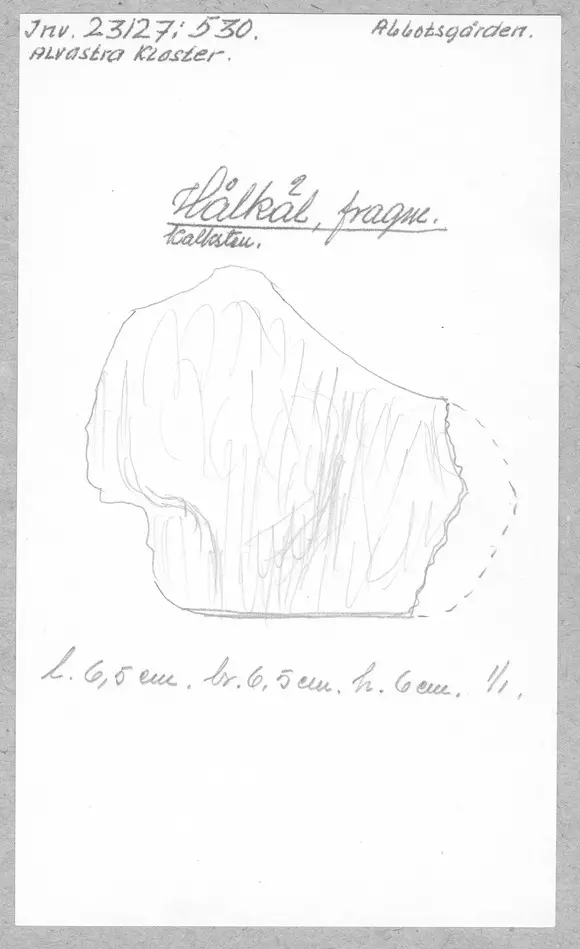 Inv. 23127; 530. Abbotsgården.
Alvastra Kloster.
Hålkäl, fragm.
Kalksten.
l. 6,5 cm. br. 6,5 cm. h. 6 cm. 1/1.